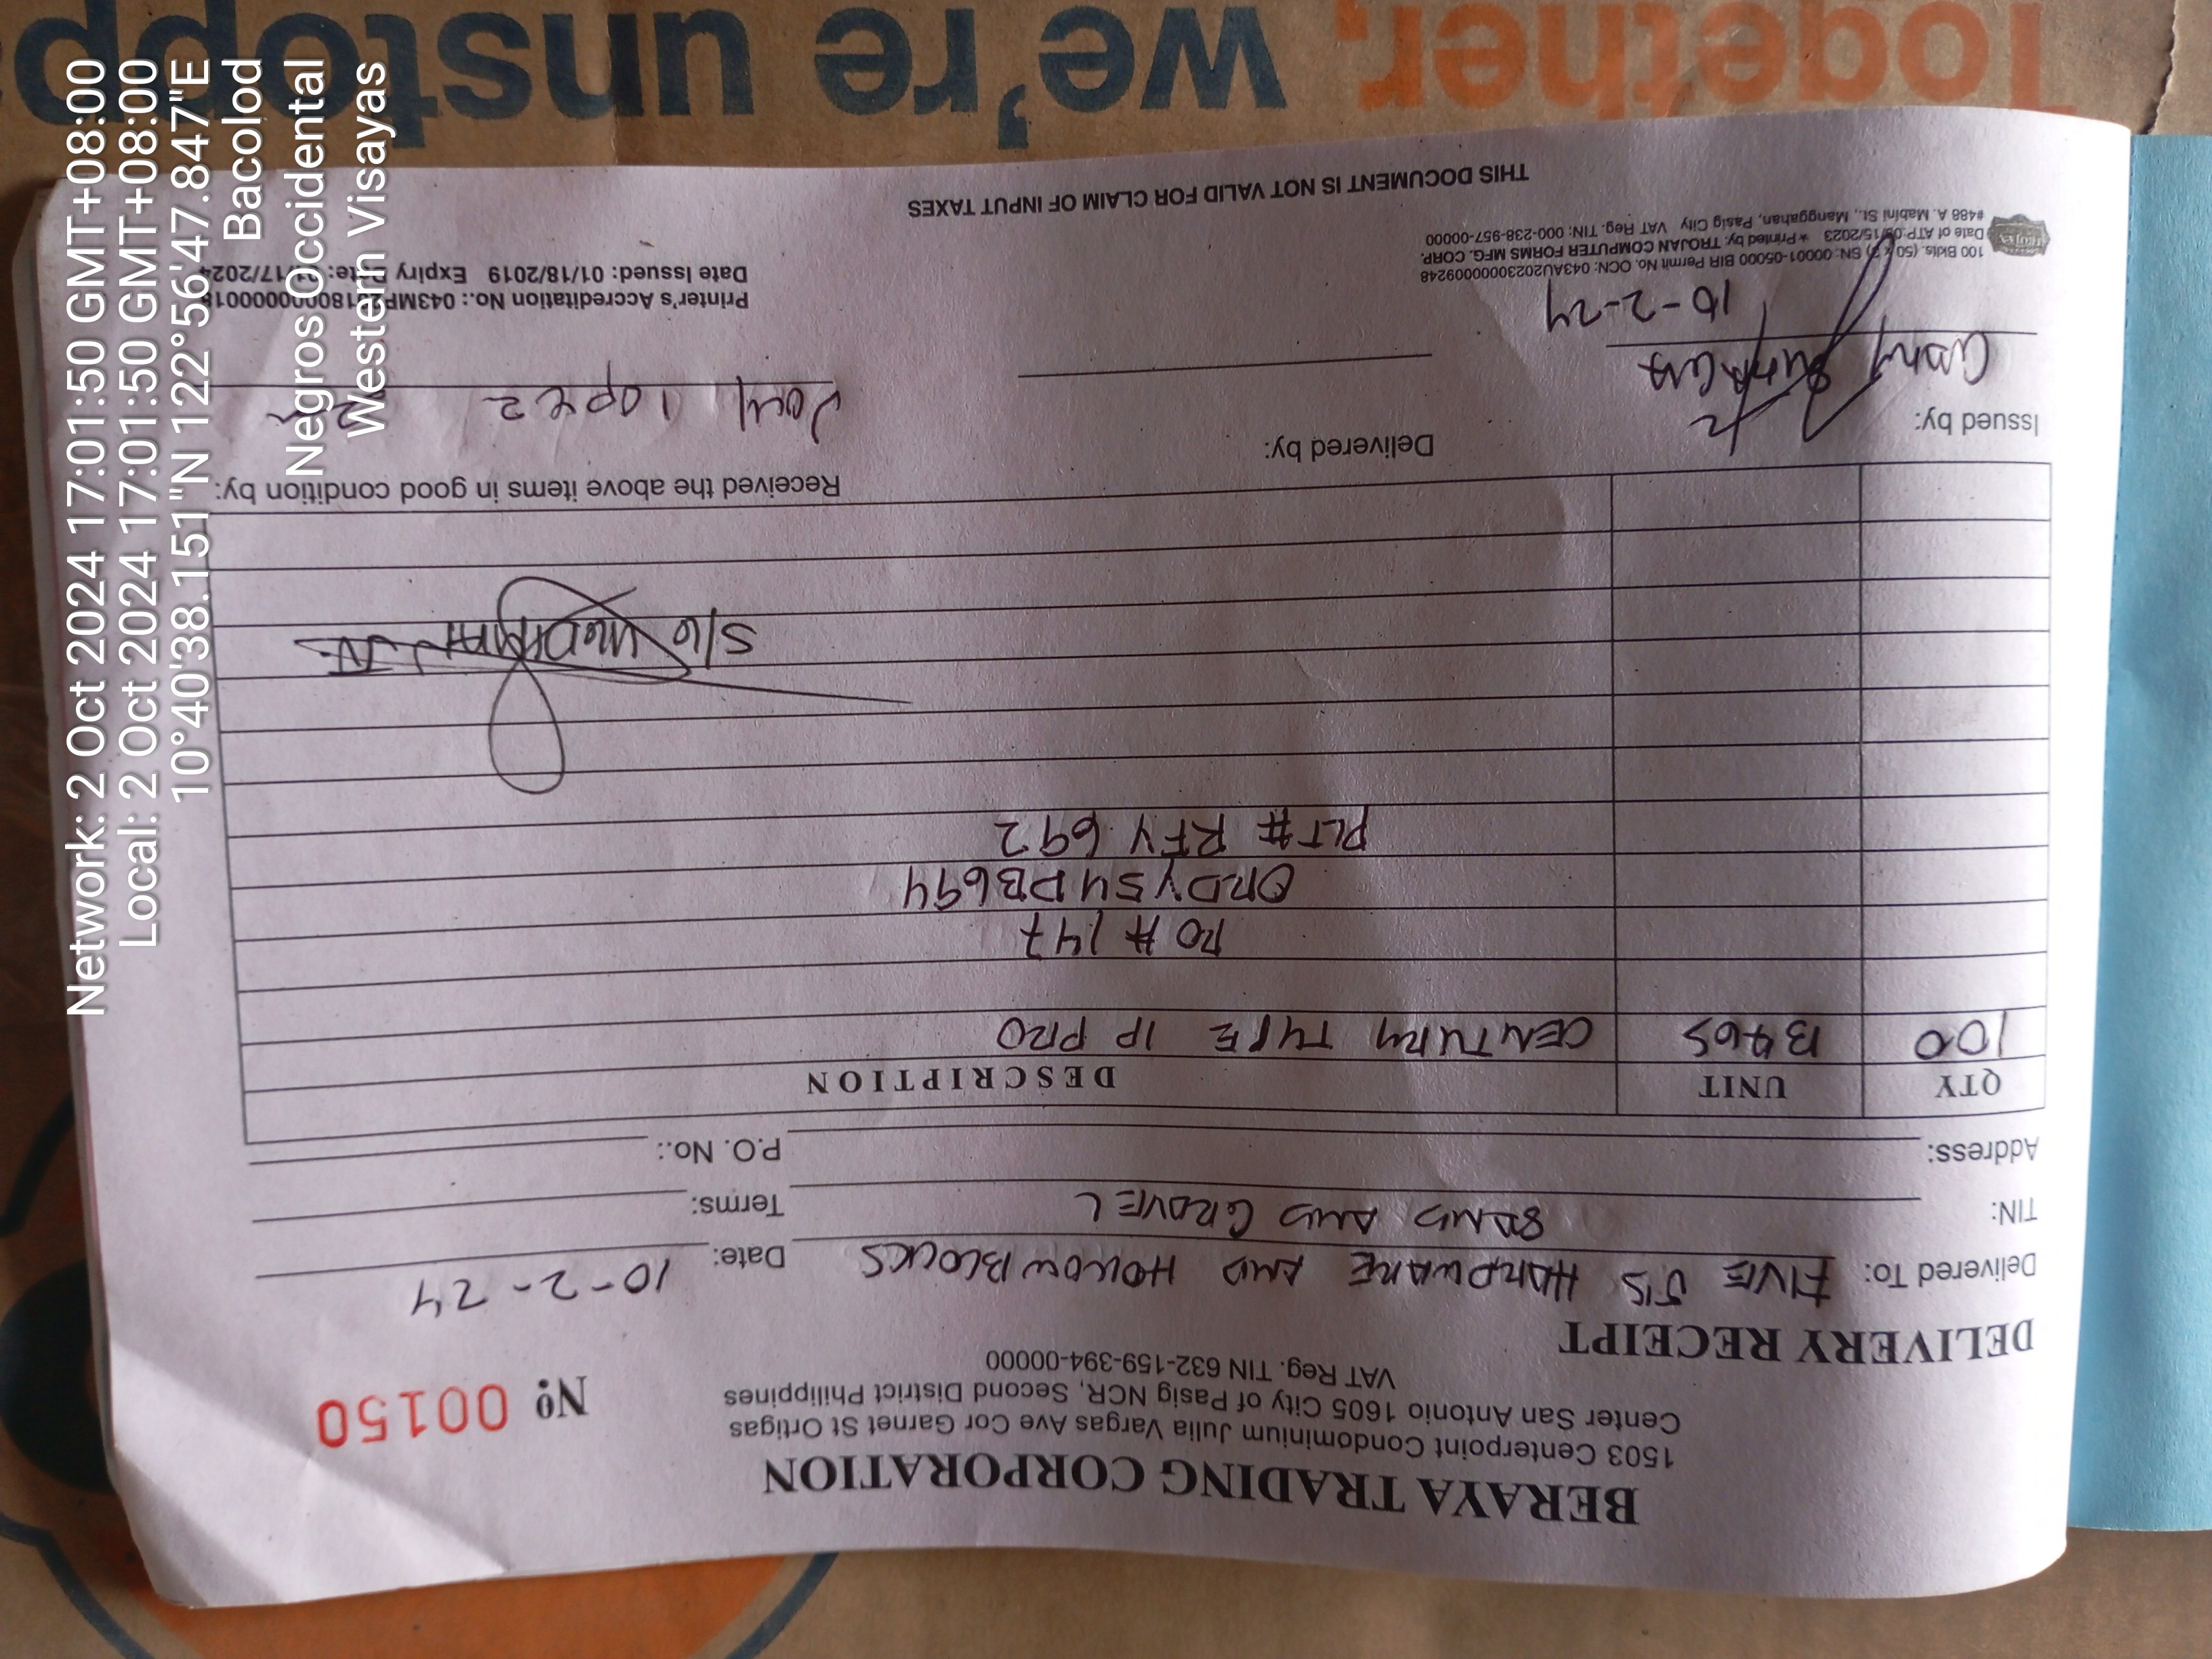 Network: 2 Oct 2024 17:01:50 GMT+08:00
Local: 2 Oct 2024 17:01:50 GMT+08:00
10°40'38.151"N 122°56'47.847"E
Bacolod
Negros Occidental
Western Visayas
BERAYA TRADING CORPORATION
1503 Centerpoint Condominium Julia Vargas Ave Cor Garnet St Ortigas
Center San Antonio 1605 City of Pasig NCR, Second District Philippines
VAT Reg. TIN 632-159-394-00000
Nº 00150
DELIVERY RECEIPT
Delivered To: FIVE J'S HARDWARE AND HOLLOW BLOCKS
Date: 10-2-24
TIN: SAND AND GRAVEL
Terms:
Address:
P.O. No.:
QTY UNIT DESCRIPTION
100 BAGS CENTURY TYPE 1P PRO
PO # 147
ORDY54DB694
PLT# RFY 692
S/G
Issued by:
Delivered by:
Received the above items in good condition by:
Lopez
10-2-24
100 Bklts. (50 x 3) SN: 00001-05000 BIR Permit No. OCN: 043AU20230000009248
Date of ATP: 09/15/2023 * Printed by: TROJAN COMPUTER FORMS MFG. CORP.
#488 A. Mabini St., Manggahan, Pasig City VAT Reg. TIN: 000-238-957-00000
Printer's Accreditation No.:
Date Issued: 01/18/2019 Expiry Date: 01/17/2024
THIS DOCUMENT IS NOT VALID FOR CLAIM OF INPUT TAXES
Together, we're unstopp